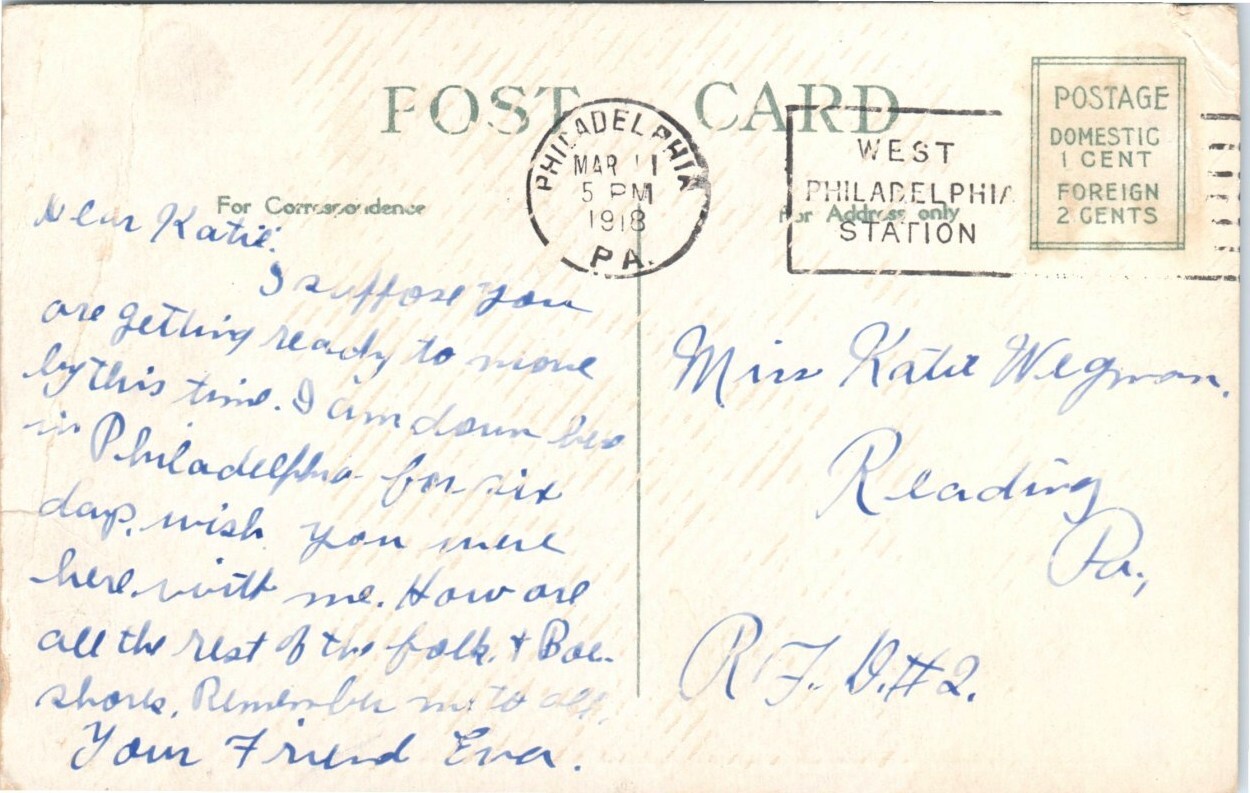 POST CARD
For Correspondence
For Address only
PHILADELPHIA
MAR 11
5 PM
1918
PA.
WEST
PHILADELPHIA
STATION
POSTAGE
DOMESTIC
1 CENT
FOREIGN
2 CENTS
Dear Katie:
I suppose you
are getting ready to move
by this time. I am down here
in Philadelphia for six
days, wish you were
here with me. How are
all the rest of the folk. &
Remember me to all,
Your Friend Eva.
Miss Katie Wegman.
Reading
Pa.,
R.F.D.#2.